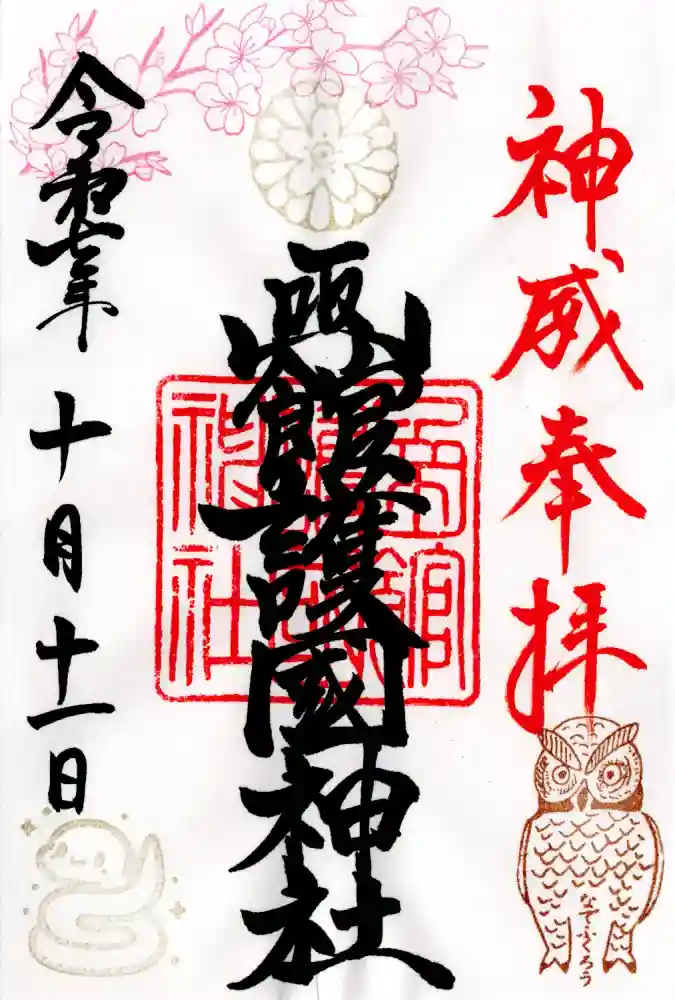 神威奉拝
なでふくろう
函館護國神社
函館護國神社
令和七年十月十一日